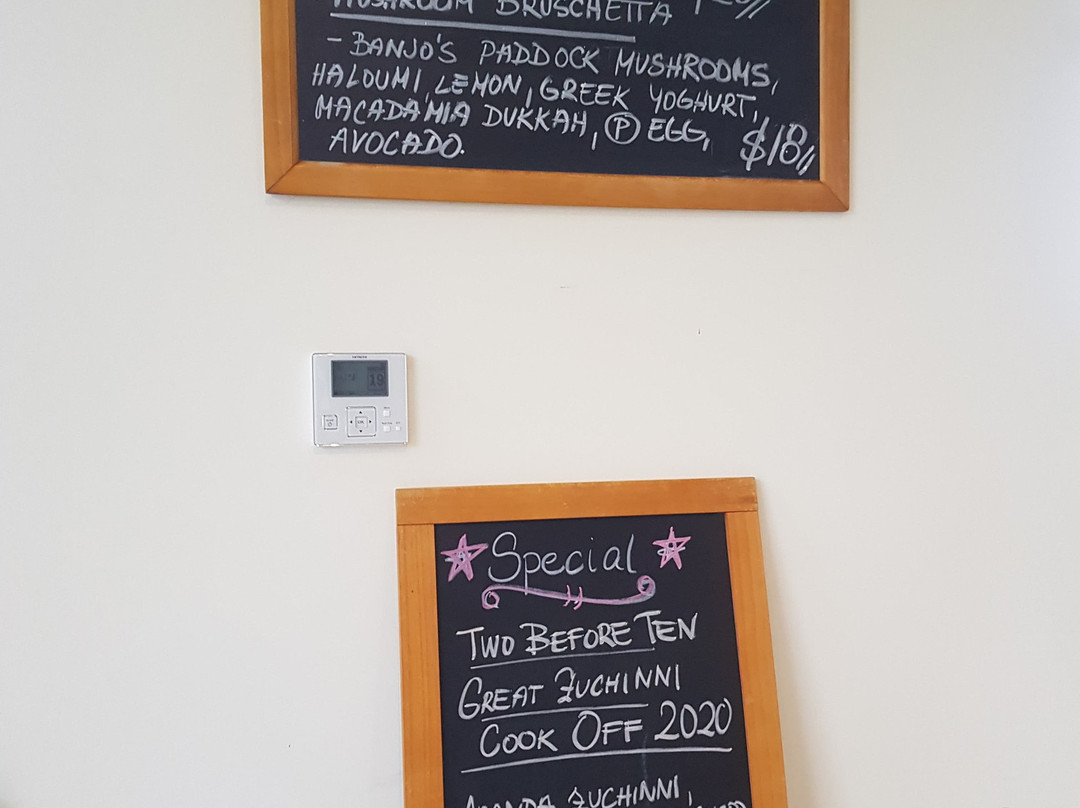 MUSHROOM BRUSCHETTA
- BANJO'S PADDOCK MUSHROOMS,
HALOUMI, LEMON, GREEK YOGHURT,
MACADAMIA DUKKAH, Ⓟ EGG,
AVOCADO. $18//
HITACHI
19
Special
TWO BEFORE TEN
GREAT ZUCHINNI
COOK OFF 2020
ZUCHINNI,